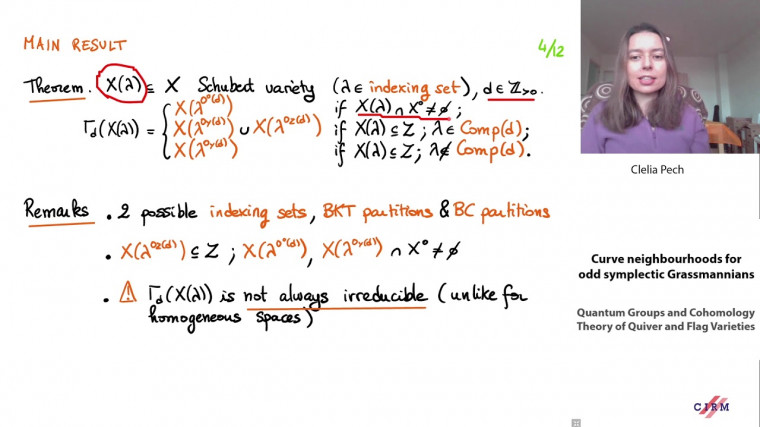 MAIN RESULT
4/12
Theorem. X(λ) ⊆ X Schubert variety (λ ∈ indexing set), d ∈ ℤ>0.
Γd(X(λ)) = { X(λ^{0°(d)}) if X(λ) ∩ X° ≠ ∅ ;
X(λ^{0Y(d)}) ∪ X(λ^{0Z(d)}) if X(λ) ⊆ Z ; λ ∈ Comp(d) ;
X(λ^{0Y(d)}) if X(λ) ⊆ Z ; λ ∉ Comp(d) .
Remarks . 2 possible indexing sets, BKT partitions & BC partitions
. X(λ^{0Z(d)}) ⊆ Z ; X(λ^{0°(d)}), X(λ^{0Y(d)}) ∩ X° ≠ ∅
. ⚠ Γd(X(λ)) is not always irreducible (unlike for
homogeneous spaces)
Clelia Pech
Curve neighbourhoods for
odd symplectic Grassmannians
Quantum Groups and Cohomology
Theory of Quiver and Flag Varieties
CIRM